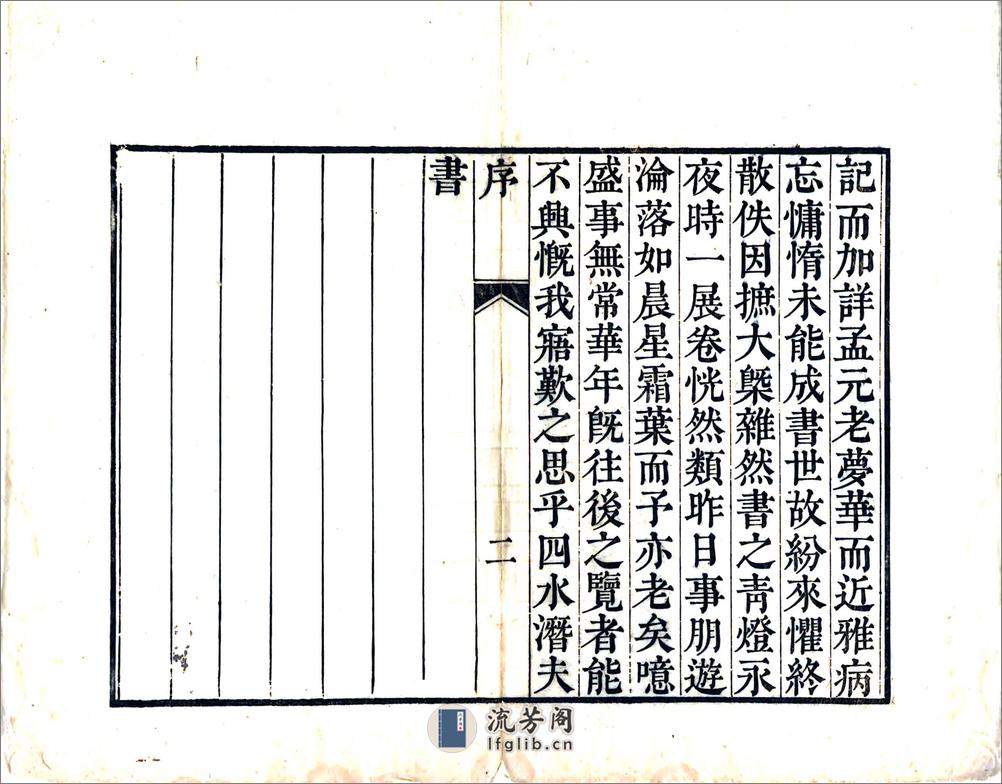 記而加詳孟元老夢華而近雅病
忘慵惰未能成書世故紛來懼終
散佚因摭大槩雜然書之靑燈永
夜時一展卷恍然類昨日事朋遊
淪落如晨星霜葉而予亦老矣噫
盛事無常華年旣往後之覽者能
不興慨我寤歎之思乎四水潛夫
序 二
書
流芳阁
lfglib.cn